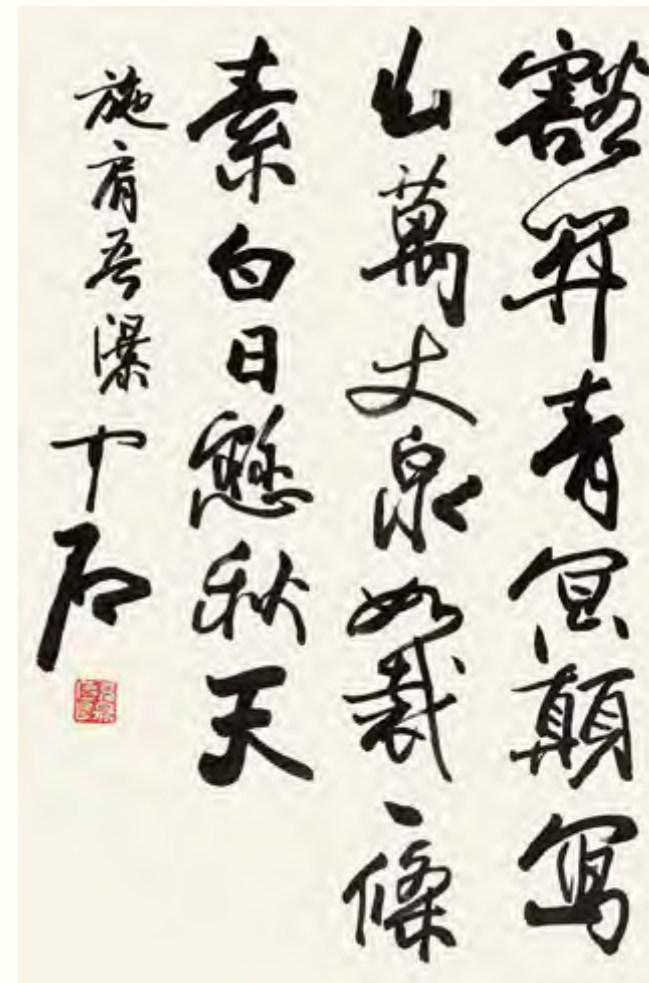 豁開青冥顛寫
出萬丈泉如裁一條
素白日懸秋天
施肩吾瀑 中石